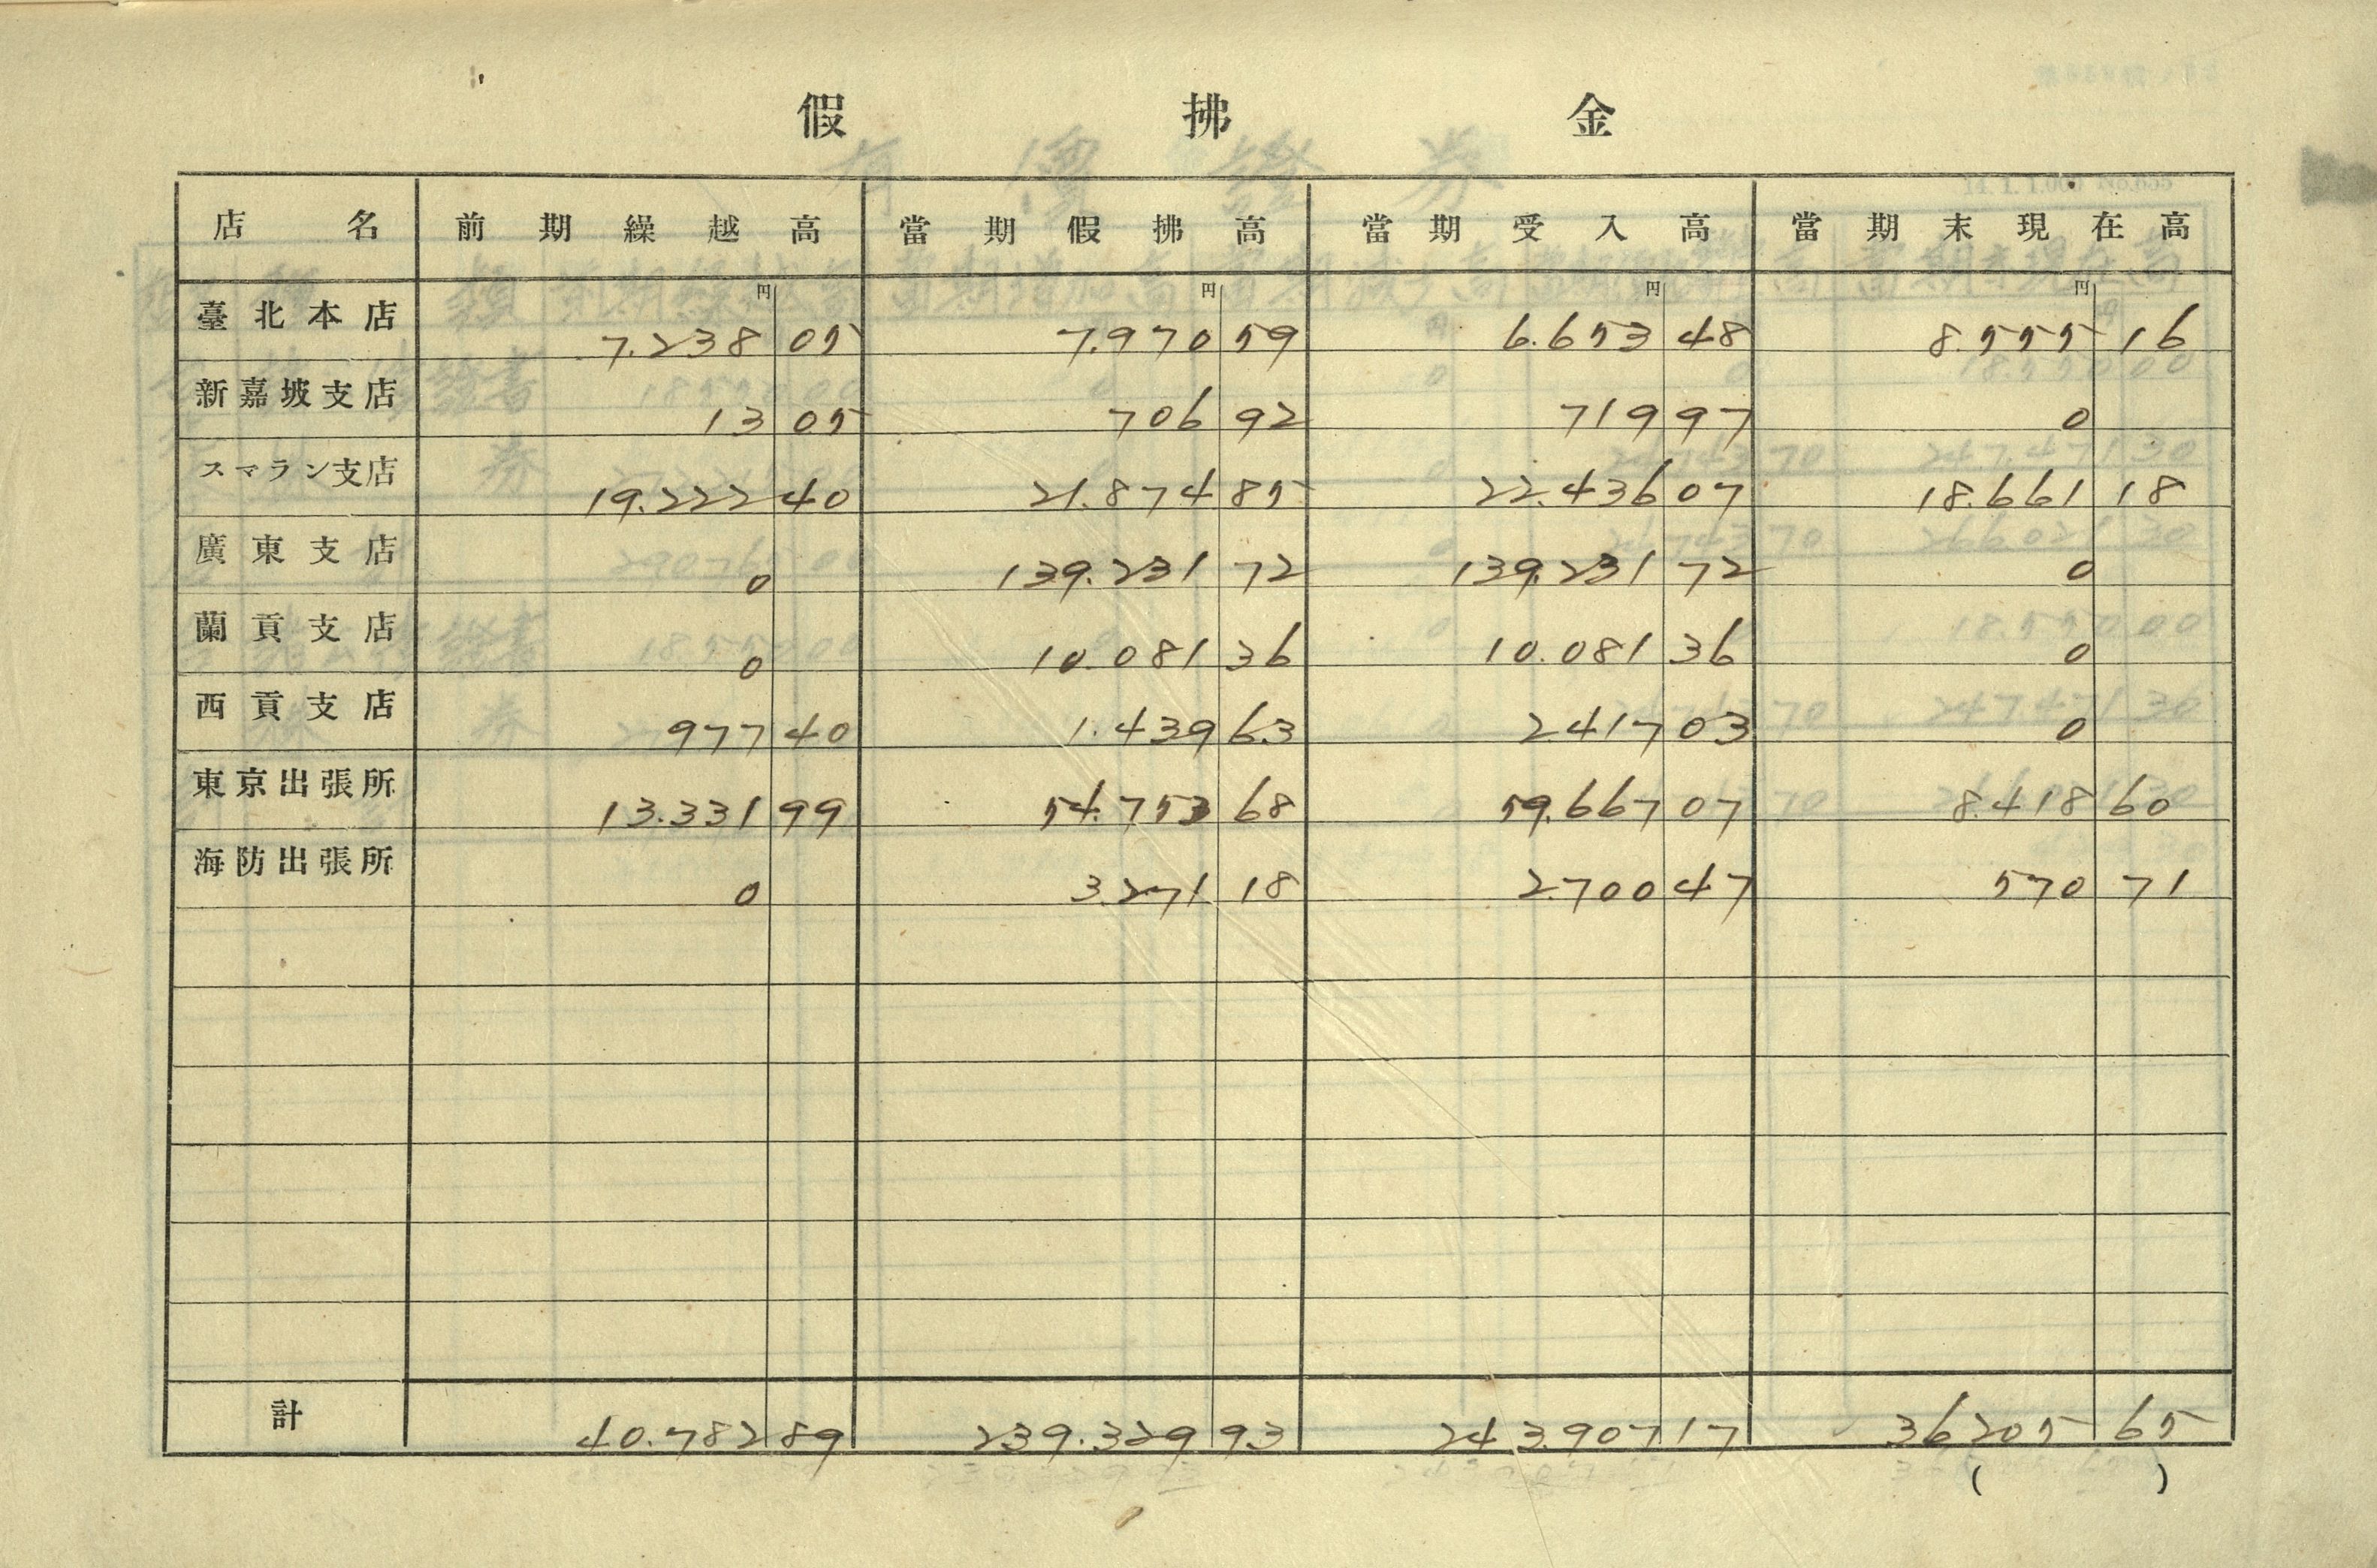 假拂金
店名 前期繰越高 當期假拂高 當期受入高 當期末現在高
円 円 円 円
臺北本店 7.238 05 7.970 59 6.653 48 8.555 16
新嘉坡支店 13 05 706 92 719 97 0
スマラン支店 19.222 40 21.874 85 22.436 07 18.661 18
廣東支店 0 139.231 72 139.231 72 0
蘭貢支店 0 10.081 36 10.081 36 0
西貢支店 977 40 1.439 63 2417 03 0
東京出張所 13.331 99 54.753 68 59.667 07 8.418 60
海防出張所 0 3.271 18 2.700 47 570 71
計 40.782 89 239.329 93 243.907 17 36205 65
( )